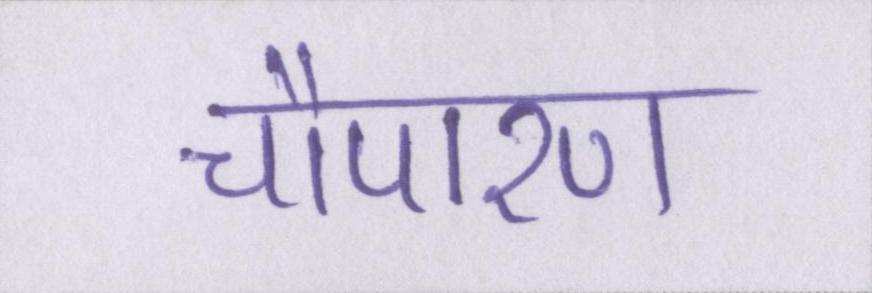 चौपारण